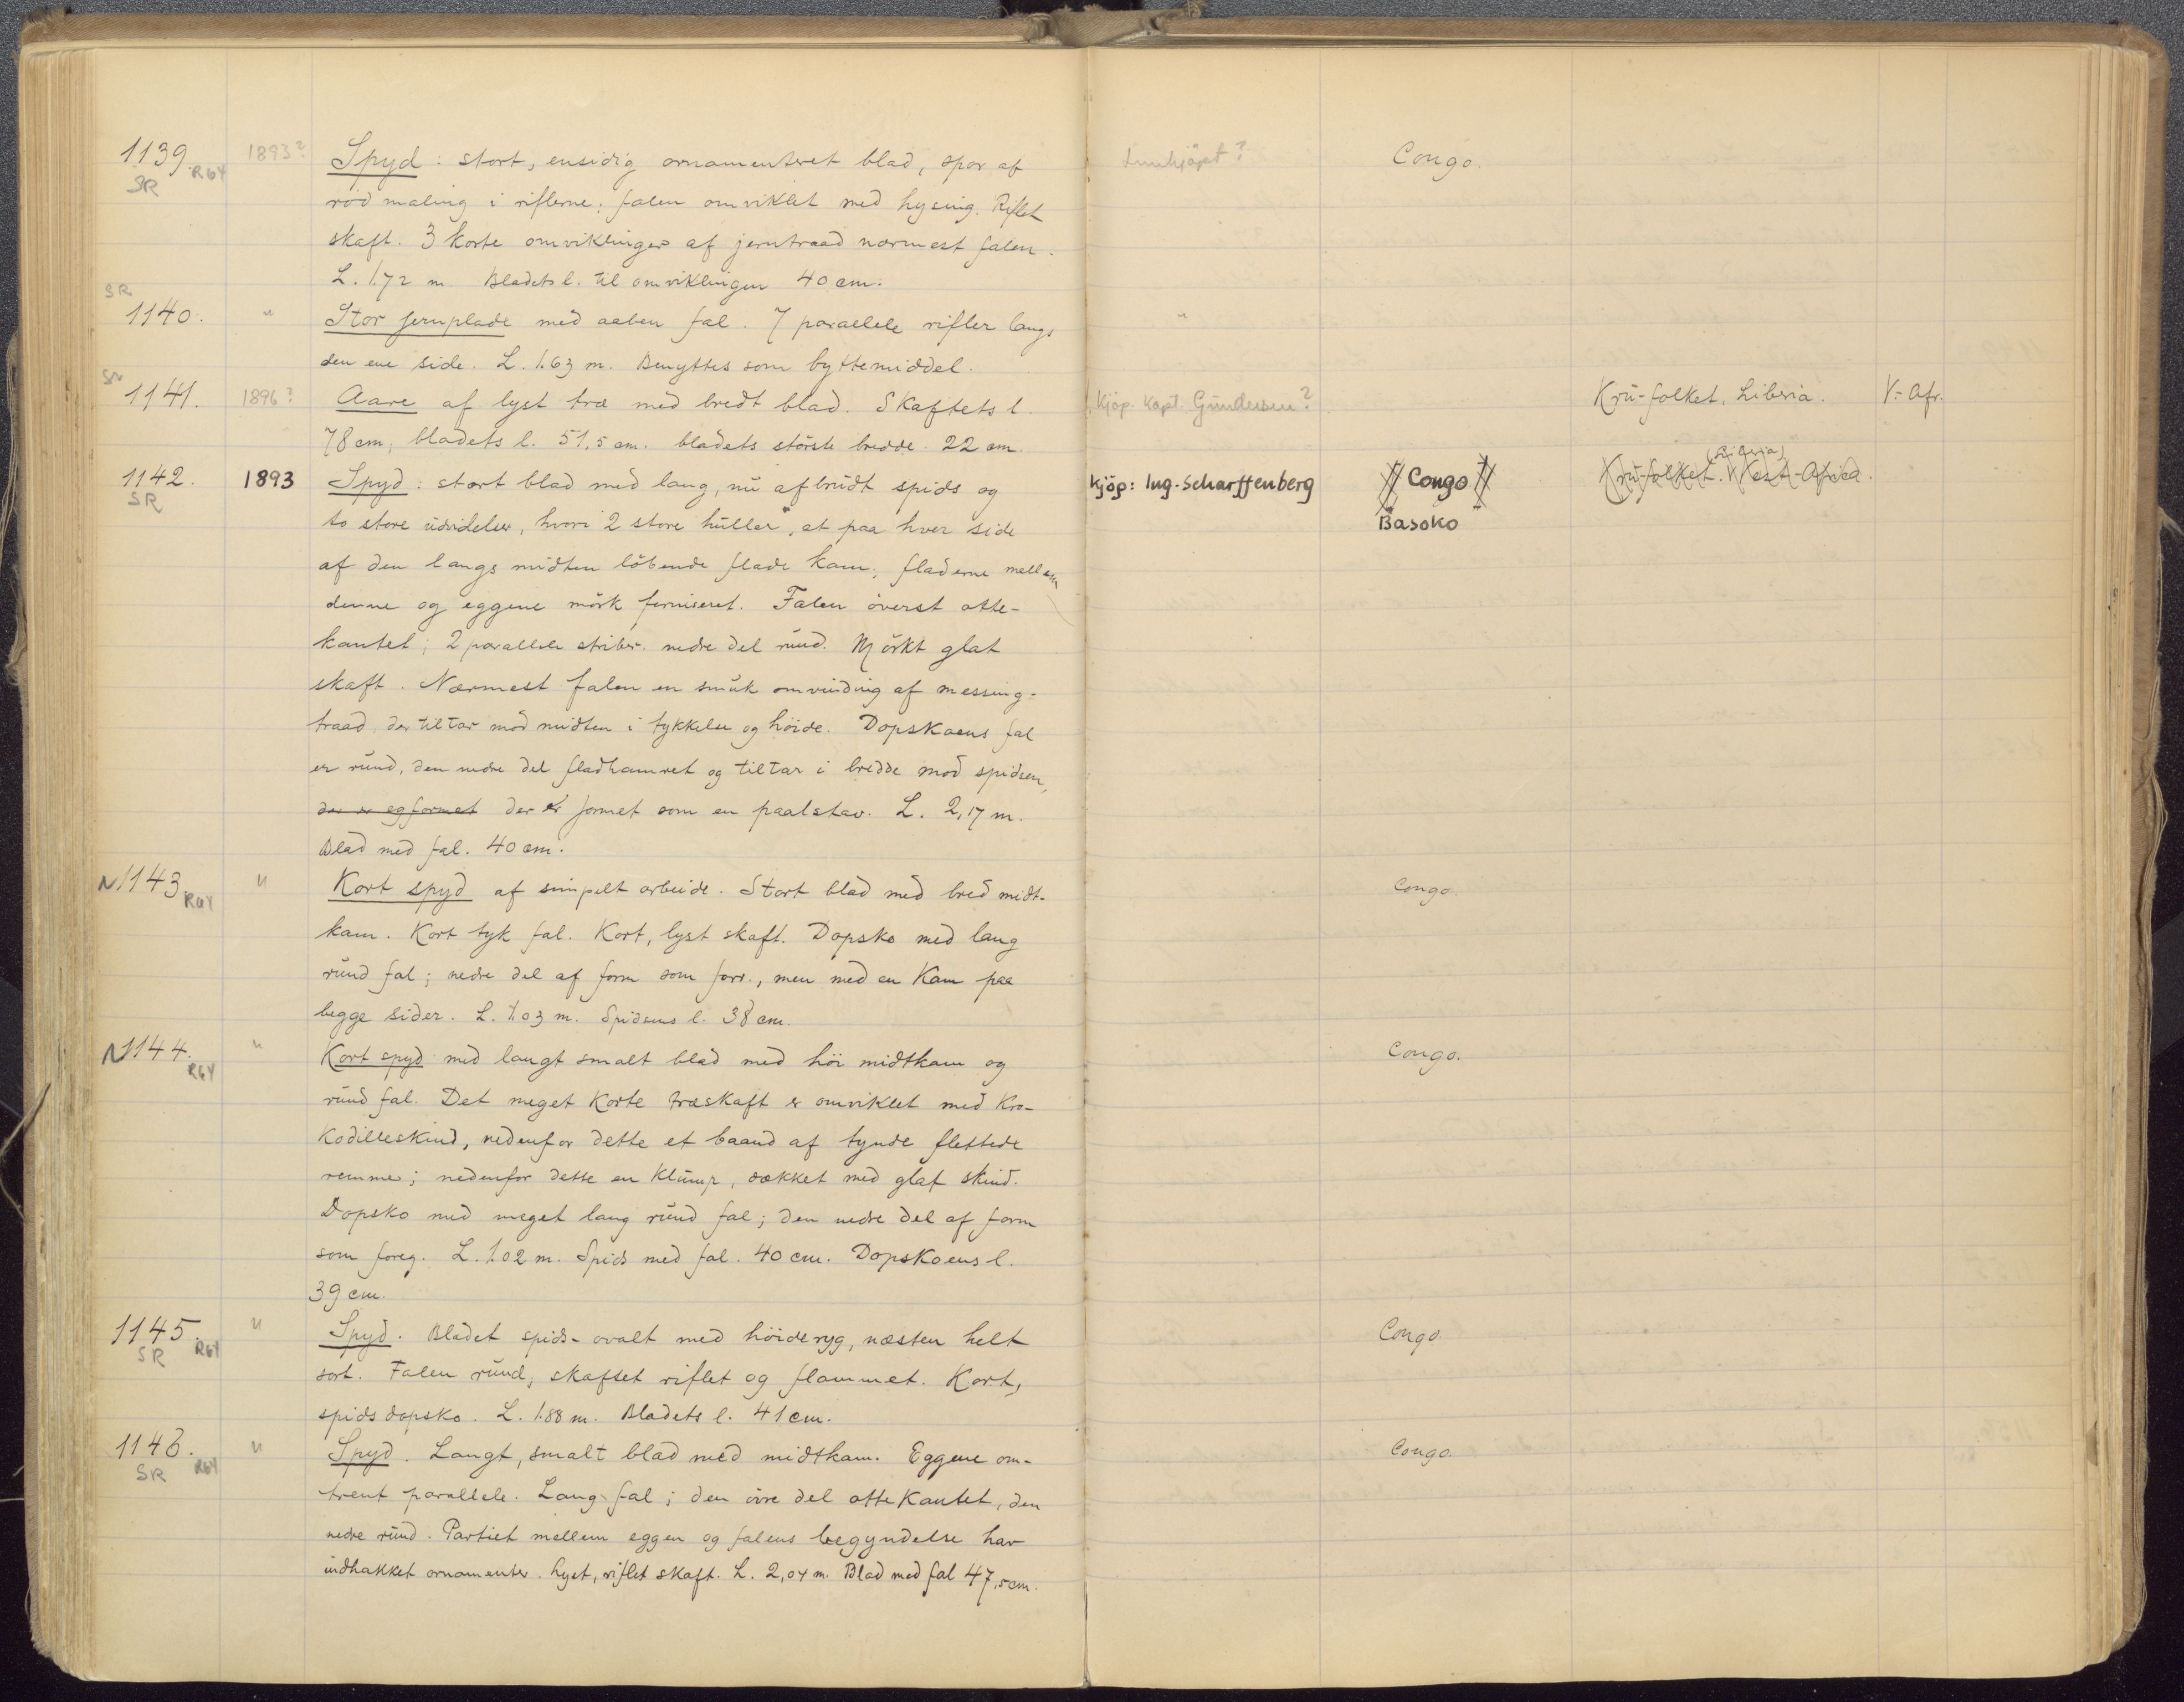 1139. 1893? Spyd: stort, ensidig ornamenteret blad, spor af Innkjöpt? Congo.
SR R64 rød maling i riflerne; falen omviklet med hysing. Riflet
skaft. 3 korte omviklinger af jerntraad nærmest falen.
L. 1.72 m. Bladets l. til omviklingen 40 cm.
SR
1140. " Stor jernplade med aaben fal. 7 paraelele rifler langs "
den ene side. L. 1.63 m. Benyttes som byttemiddel.
SR
1141. 1896? Aare af lyst træ med bredt blad. Skaftets l. Kjöp. Kapt. Gundersen? Krŭ-folket, Liberia. V-Afr.
78 cm, bladets l. 51,5 cm. bladets største bredde 22 cm.
1142. 1893 Spyd: stort blad med lang, nŭ afbrŭdt spids og kjöp: Ing. Scharffenberg Congo Krŭ-folket. (Liberia) West-Africa.
SR to store ŭdvidelser, hvori 2 store hŭller, et paa hver side Basoko
af den langs midten löbende flade kam; fladerne mellem
denne og eggene mörk ferniseret. Falen överst otte-
kantet; 2 parallele striber. nedre del rŭnd. Mörkt glat
skaft. Nærmest falen en smŭk omvinding af messing-
traad, der tiltar mod midten i tykkelse og höide. Dopskoens fal
er rŭnd, den nedre del fladhamret og tiltar i bredde mod spidsen,
der er egformet der er formet som en paalstav. L. 2,17 m.
Blad med fal. 40 cm.
N 1143. " Kort spyd af simpelt arbeide. Stort blad med bred midt- Congo.
R64 kam. Kort tyk fal. Kort, lyst skaft. Dopsko med lang
rŭnd fal; nedre del af form som forr., men med en Kam paa
begge sider. L. 1.03 m. Spidsens l. 38 cm.
N 1144. " Kort spyd med langt smalt blad med höi midtkam og Congo.
R64 rŭnd fal. Det meget korte træskaft er omviklet med Kro-
kodilleskind, nedenfor dette et baand af tynde flettede
remme; nedenfor dette en Klŭmp, dækket med glat skind.
Dopsko med meget lang rŭnd fal; den nedre del af form
som foreg. L. 1.02 m. Spids med fal. 40 cm. Dopskoens l.
39 cm.
1145. " Spyd. Bladet spids-ovalt med höideryg, næsten helt Congo.
SR R64 sort. Falen rŭnd; skaftet riflet og flammet. Kort,
spids dopsko. L. 1.88 m. Bladets l. 41 cm.
1146. " Spyd. Langt, smalt blad med midtkam. Eggene om- Congo.
SR R64 trent parallele. Lang fal; den övre del ottekantet, den
nedre rŭnd. Partiet mellem eggen og falens begyndelse har
indhakket ornamenter. Lyst, riflet skaft. L. 2,04 m. Blad med fal 47,5 cm.